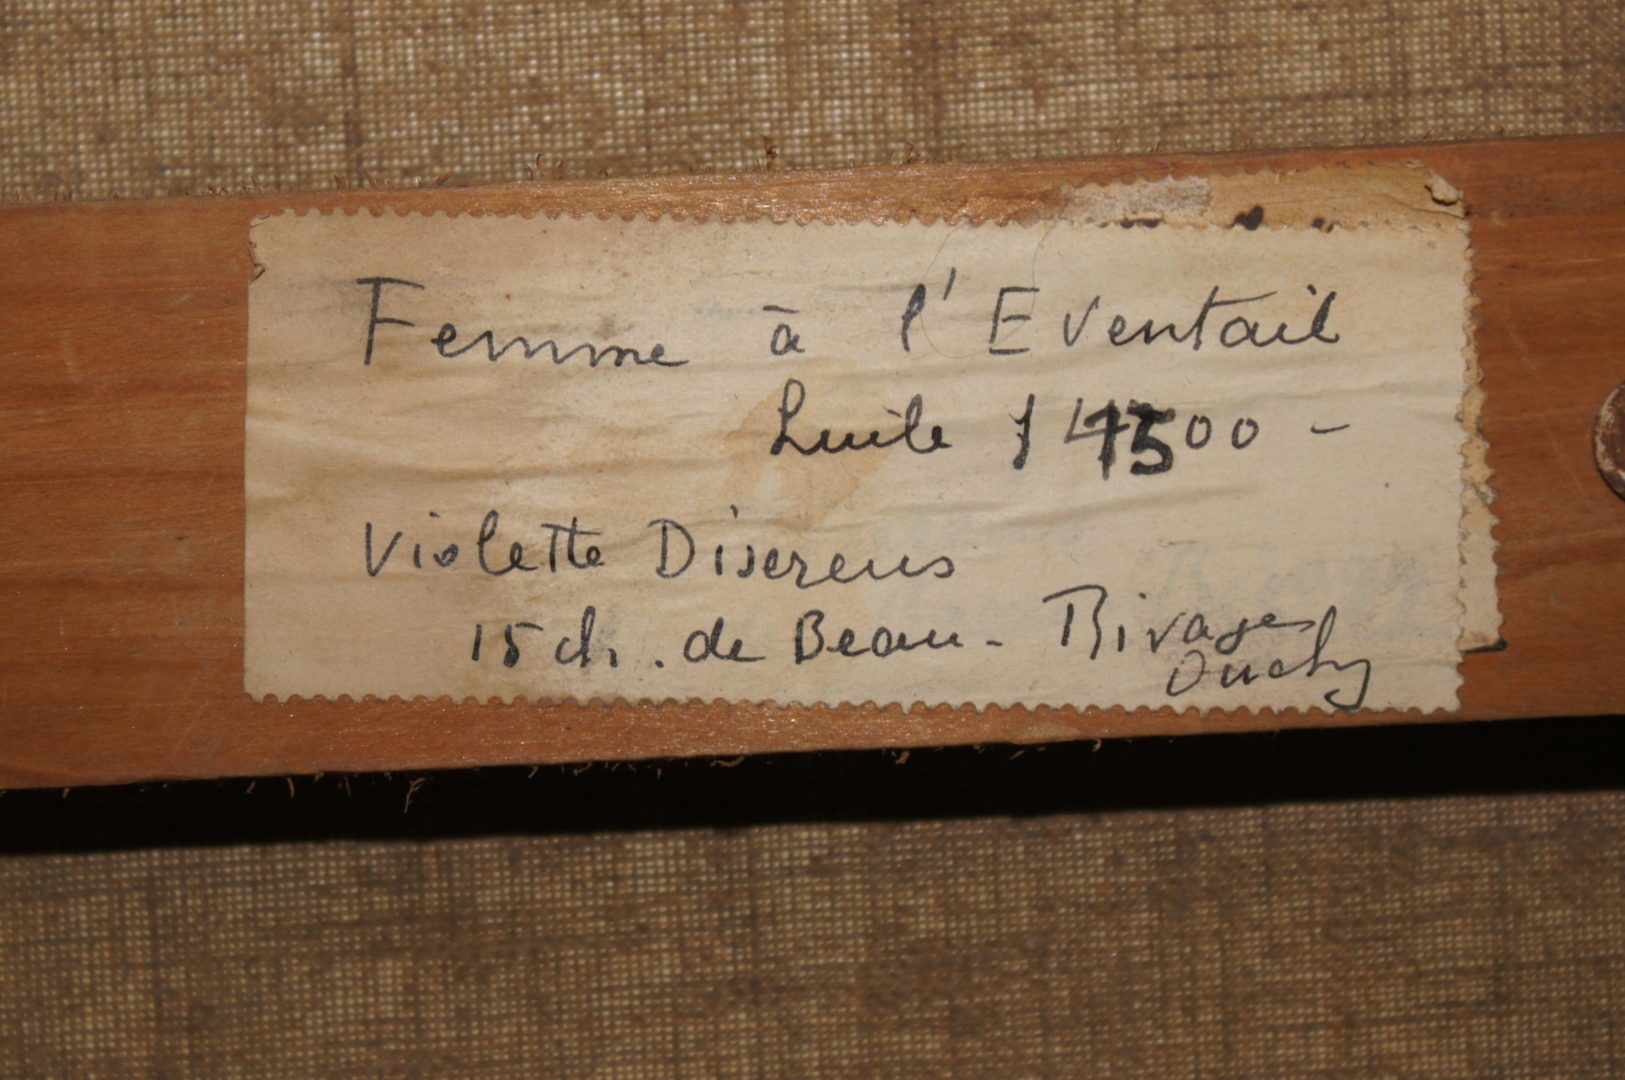 Femme à l'Eventail
huile f 1500 -
Violette Diserens
15 ch. de Beau-Rivage
Ouchy